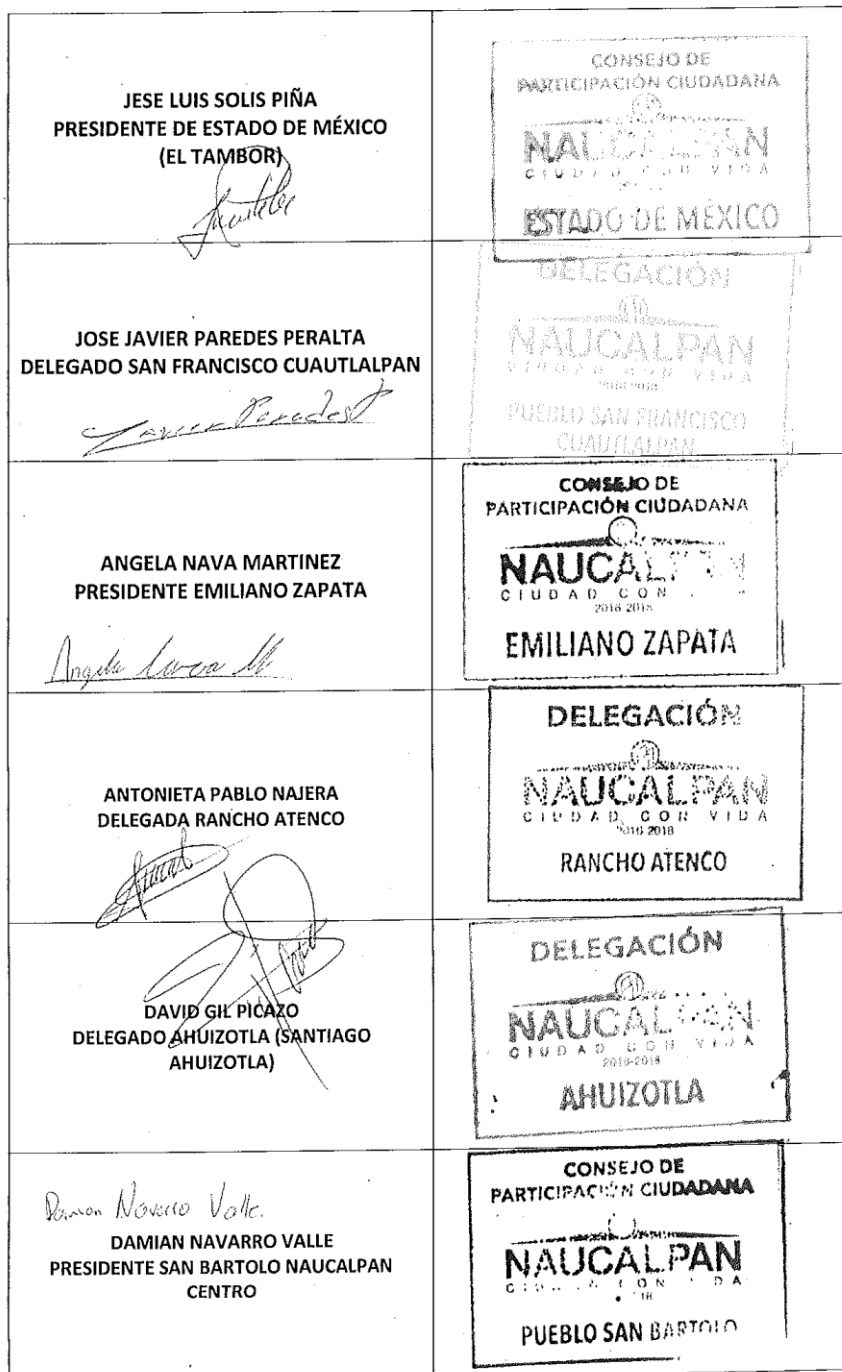 JESE LUIS SOLIS PIÑA
PRESIDENTE DE ESTADO DE MÉXICO
(EL TAMBOR)
CONSEJO DE
PARTICIPACIÓN CIUDADANA
NAUCALPAN
CIUDAD CON VIDA
ESTADO DE MÉXICO
JOSE JAVIER PAREDES PERALTA
DELEGADO SAN FRANCISCO CUAUTLALPAN
Javier Paredes P
DELEGACIÓN
NAUCALPAN
CIUDAD CON VIDA
2016-2018
PUEBLO SAN FRANCISCO
CUAUTLALPAN
ANGELA NAVA MARTINEZ
PRESIDENTE EMILIANO ZAPATA
Angela Nava M
CONSEJO DE
PARTICIPACIÓN CIUDADANA
NAUCALPAN
CIUDAD CON
2016-2018
EMILIANO ZAPATA
ANTONIETA PABLO NAJERA
DELEGADA RANCHO ATENCO
DELEGACIÓN
NAUCALPAN
CIUDAD CON VIDA
2016-2018
RANCHO ATENCO
DAVID GIL PICAZO
DELEGADO AHUIZOTLA (SANTIAGO
AHUIZOTLA)
DELEGACIÓN
NAUCALPAN
CIUDAD CON VIDA
2016-2018
AHUIZOTLA
Damian Navarro Valle.
DAMIAN NAVARRO VALLE
PRESIDENTE SAN BARTOLO NAUCALPAN
CENTRO
CONSEJO DE
PARTICIPACIÓN CIUDADANA
NAUCALPAN
PUEBLO SAN BARTOLO